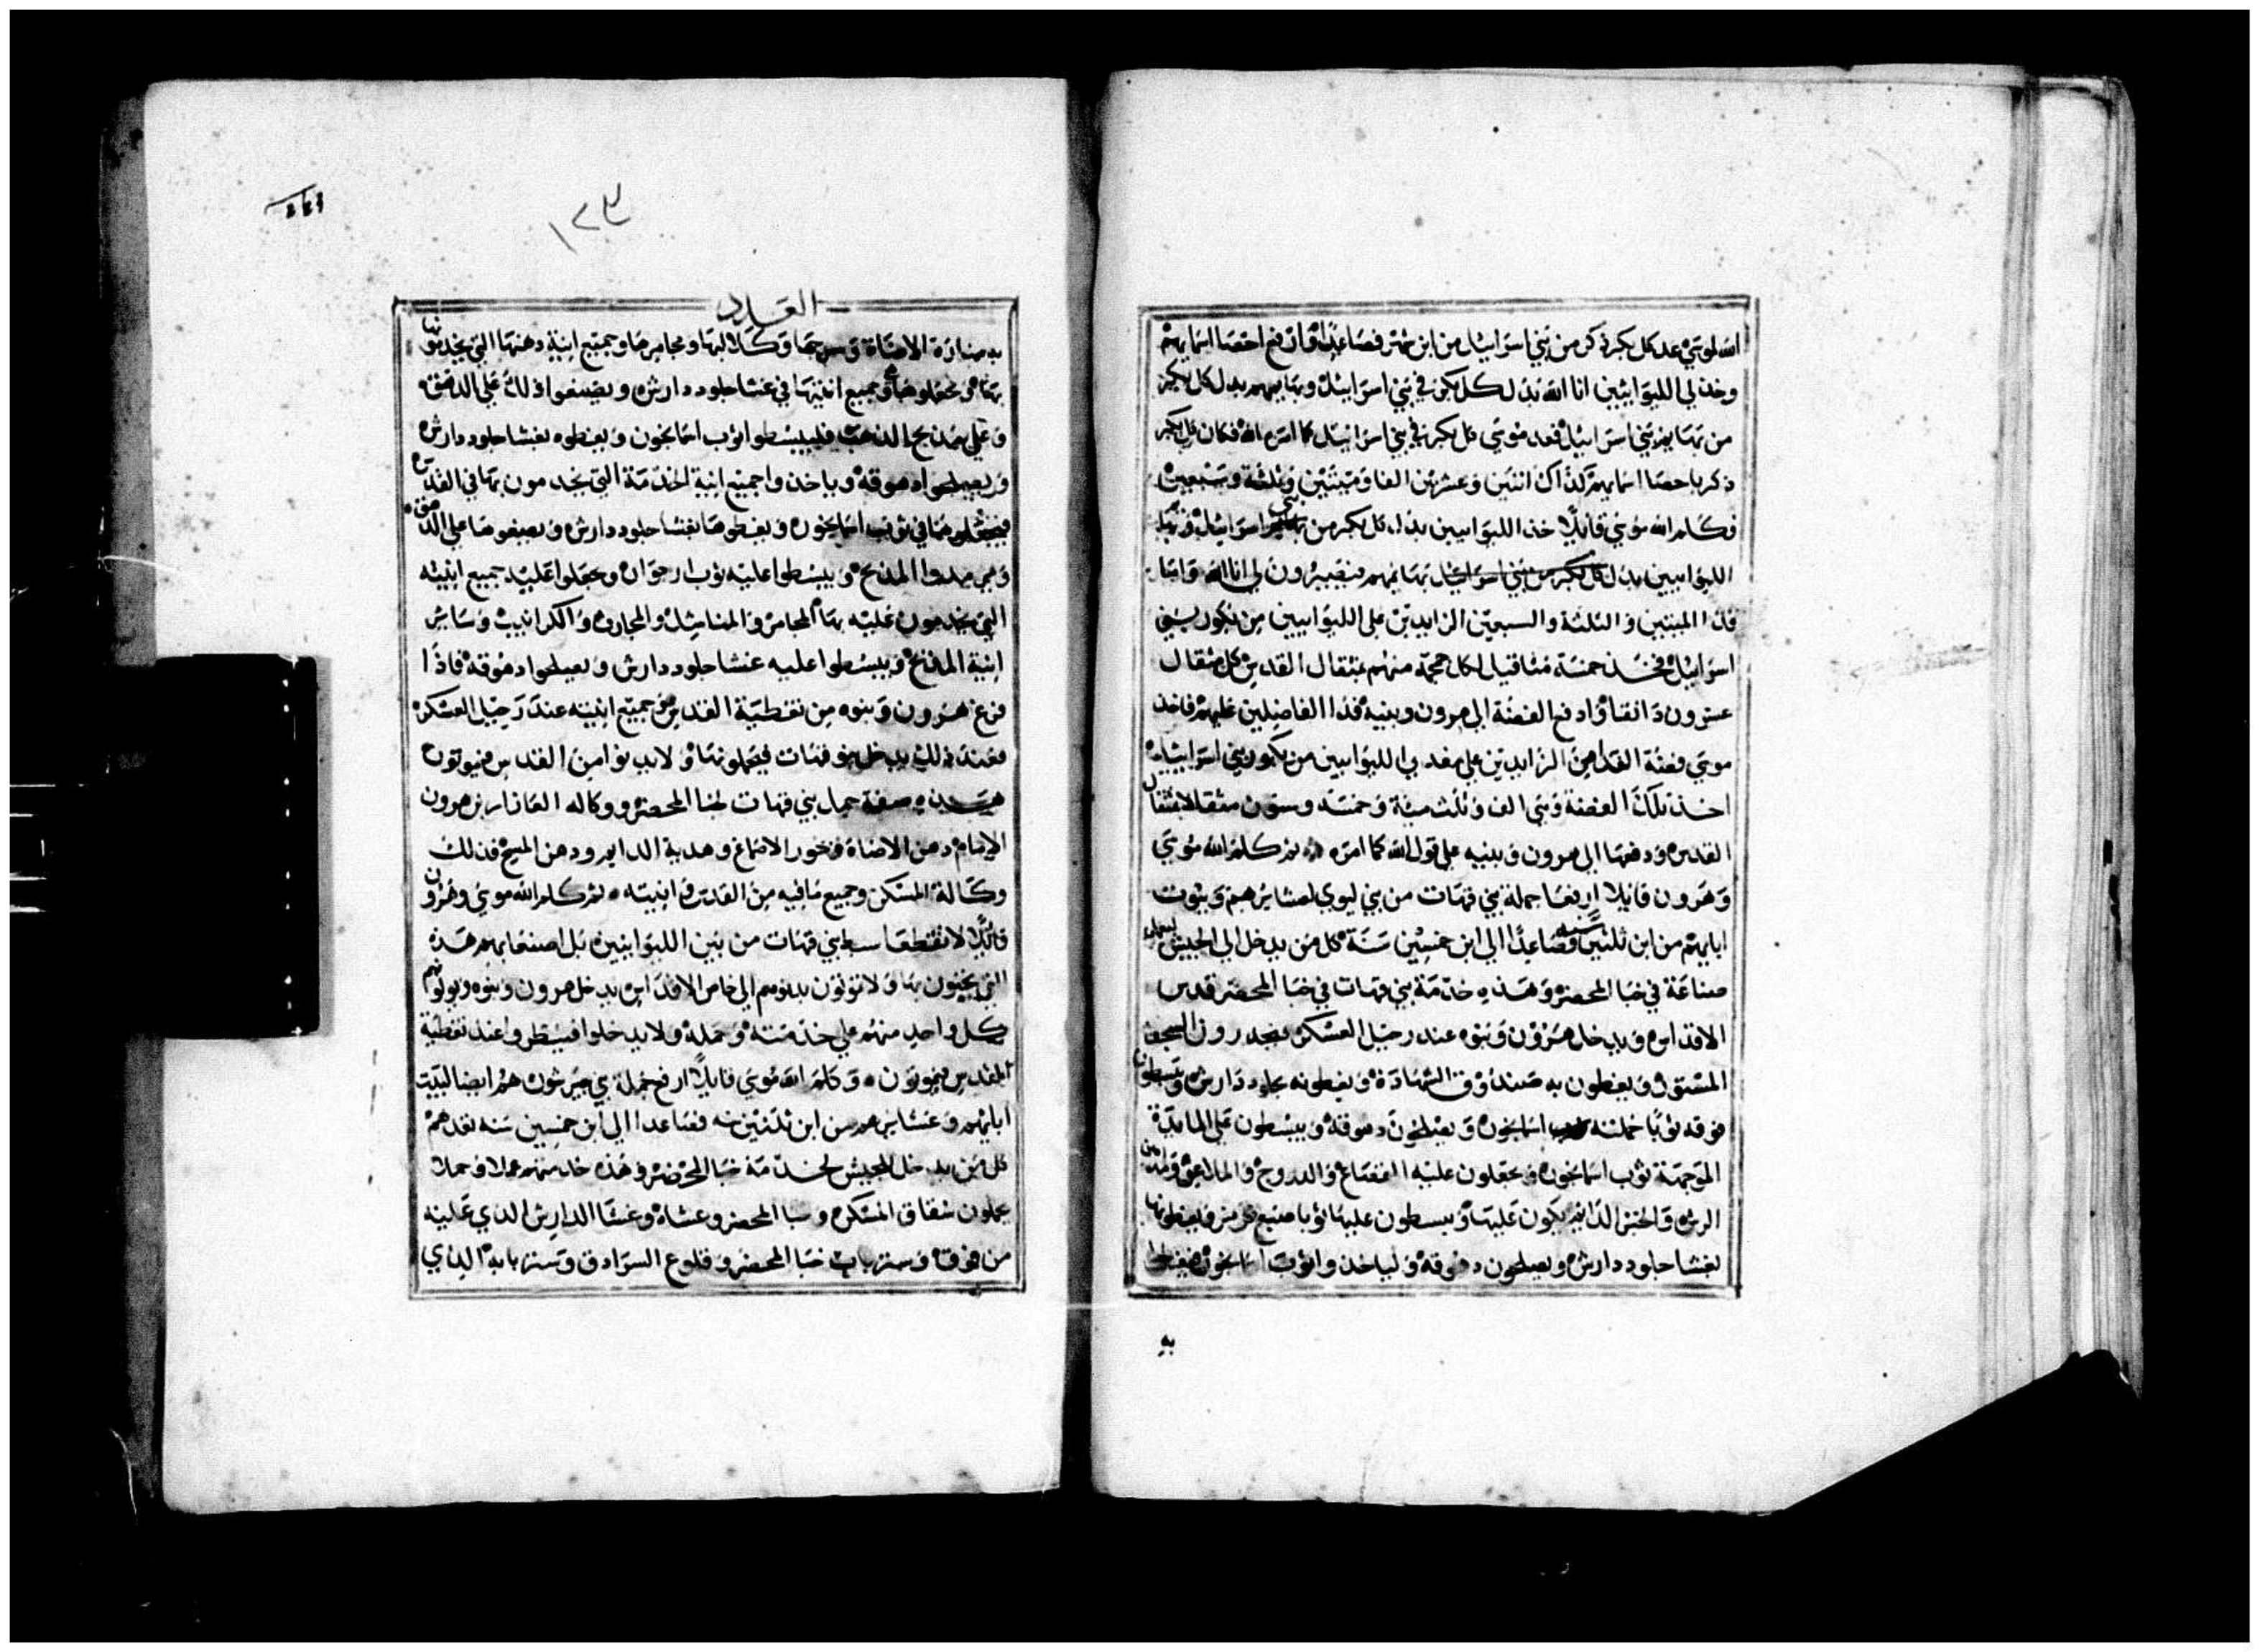 الله لموسي عد كل بكر ذكر من بني اسرائيل من ابن شهر فصاعدا وارفع احصا اسمايهم
وخذ لي الليوانيين انا الله بدل كل بكر في بني اسرائيل وبهايمهم بدل كل بكر
من بهايم بني اسرائيل فعد موسي كل بكر في بني اسرائيل كما امره الله فكان كل بكر
ذكر باحصا اسمايهم لذاك اثنين وعشرين الفا وميتين وثلثة وسبعين
فكلم الله موسي قايلا خذ الليوانيين بدل كل بكر من بني اسرائيل وبهايم
الليوانيين بدل بهايمهم فيصيرون لي انا الله واما
فدا الميتين والثلثة والسبعين الزايدين علي الليوانيين من بكور بني
اسرائيل فخذ خمسة مثاقيل لكل جمجمة منهم بمثقال القدس كل مثقال
عشرون دانقا وادفع الفضة الي هرون وبنيه فدا الفاضلين عليهم فاخذ
موسي فضة الفدا من الزايدين علي مفدي الليوانيين من بكور بني اسرائيل
اخذ تلك الفضة وهي الف وثلث مية وخمسة وستون مثقالا بمثقال
القدس ودفعها الي هرون وبنيه علي قول الله كما امره ثم كلم الله موسي
وهرون قايلا ارفعا جملة بني قهات من بني ليوي لعشايرهم وبيوت
ابايهم من ابن ثلثين سنة فصاعدا الي ابن خمسين سنة كل من يدخل الي الجيش ليعمل
صناعة في خبا المحضر وهذه خدمة بني قهات في خبا المحضر قدس
الاقداس ويدخل هرون وبنوه عند رحيل العسكر فيحدرون السجف
المستور ويغطون به صندوق الشهادة ويغطونه بجلود دارش ويبسطون
فوقه ثوبا جملته اسمانجون ويصلحون دهوقه ويبسطون علي المايدة
الموجهة ثوب اسمانجون ويجعلون عليه القصاع والدروج والملاعق ومداهن
الرش والخبز الدايم يكون عليها ويبسطون عليها ثوبا صبيغ قرمز ويغطونها
بغشا جلود دارش ويصلحون دهوقه ولياخذوا ثوب اسمانجون فيغطوا
به
١٢٣
العدد
به منارة الاضاة وسرجها وكلاليبها ومجامرها وجميع انية دهنها التي يخدمونها
بها ويجعلوها وجميع انيتها في غشا جلود دارش ويضعوا ذلك علي الدهق
وعلي مذبح الذهب فليبسطوا ثوب اسمانجون ويغطوه بغشا جلود دارش
ويصلحوا دهوقه وياخذوا جميع انية الخدمة التي يخدمون بها في القدس
فيجعلوها في ثوب اسمانجون ويغطوها بغشا جلود دارش ويضعوها علي الدهق
المذبح ويبسطوا عليه ثوب ارجوان ويجعلوا عليه جميع انيته
التي يخدمون عليه بها المجامر والمناشل والمجارف والكرانيب وساير
انية المذبح ويبسطوا عليه غشا جلود دارش ويصلحوا دهوقه فاذا
فرغ هرون وبنوه من تغطية القدس وجميع انيته عند رحيل العسكر
فعند ذلك يدخل بنو قهات فيحملونها ولا يدنوا من القدس فيموتون
هذه صفة حمل بني قهات لخبا المحضر ووكاله العازار بن هرون
الامام دهن الاضاة وبخور الاصماغ وهدية الدايم ودهن المسح فذلك
وكالة المسكن وجميع ما فيه من القدس وانيته ثم كلم الله موسي وهرون
قايلا لا تقطعا سبط بني قهات من بين الليوانيين بل اصنعا بهم هذه
التي يحيون بها ولا يموتون بدنوهم الي خاص الاقداس يدخل هرون وبنوه ويولوهم
كل واحد منهم علي خدمته وحمله ولا يدخلوا فينظروا عند تغطية
القدس فيموتون وكلم الله موسي قايلا ارفع جملة بني جيرشون هم ايضا لبيت
ابايهم وعشايرهم من ابن ثلثين سنه فصاعدا الي ابن خمسين سنه تعدهم
كل من يدخل الجيش لخدمة خبا المحضر وهذه خدمتهم عملا وحملا
يحملون شقاق المسكن وخبا المحضر وغشاه وغشا الدارش الذي عليه
من فوق وستر باب خبا المحضر وقلوع السرادق وستر بابه الذي